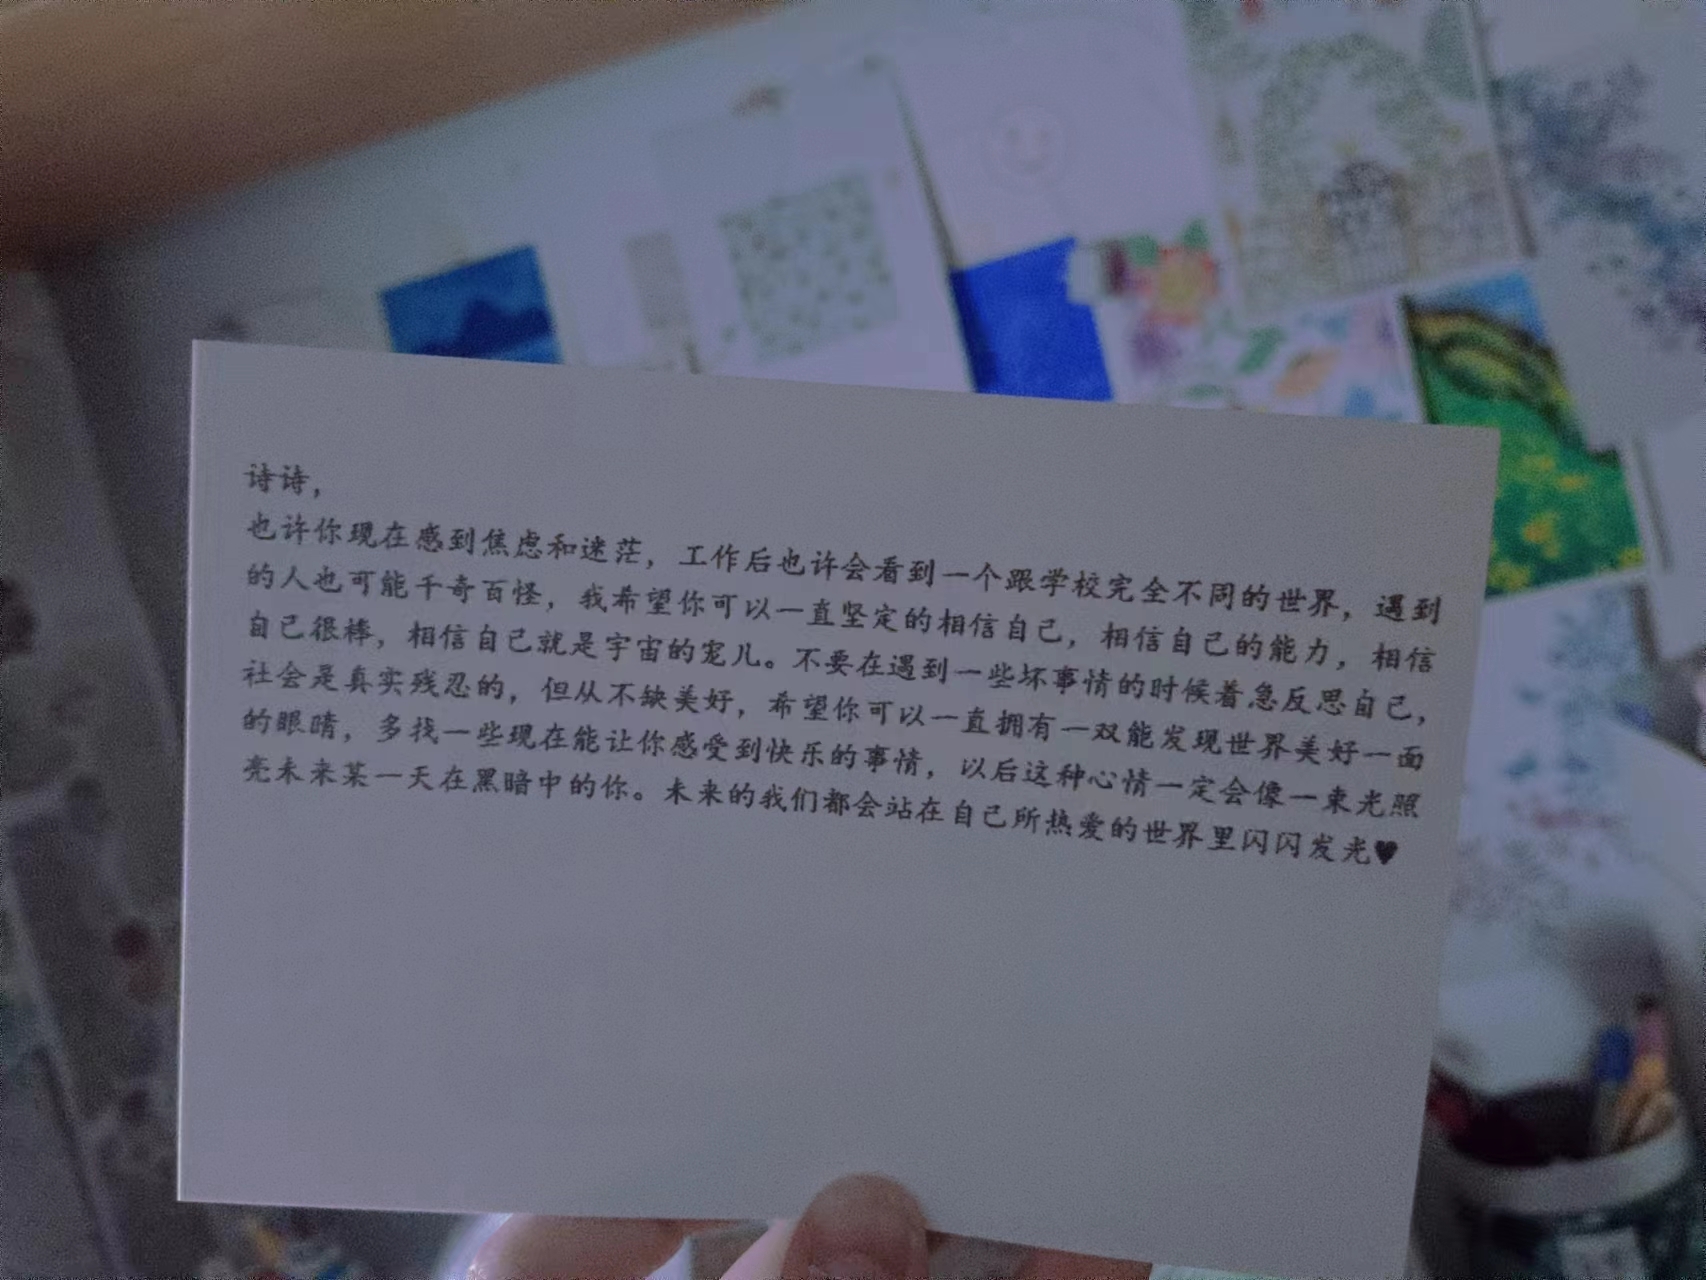 诗诗，
也许你现在感到焦虑和迷茫，工作后也许会看到一个跟学校完全不同的世界，遇到
的人也可能千奇百怪，我希望你可以一直坚定的相信自己，相信自己的能力，相信
自己很棒，相信自己就是宇宙的宠儿。不要在遇到一些坏事情的时候着急反思自己，
社会是真实残忍的，但从不缺美好，希望你可以一直拥有一双能发现世界美好一面
的眼睛，多找一些现在能让你感受到快乐的事情，以后这种心情一定会像一束光照
亮未来某一天在黑暗中的你。未来的我们都会站在自己所热爱的世界里闪闪发光♥